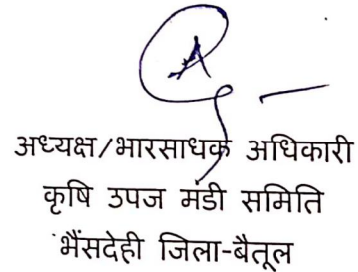 अध्यक्ष/भारसाधक अधिकारी
कृषि उपज मंडी समिति
भैंसदेही जिला-बैतूल